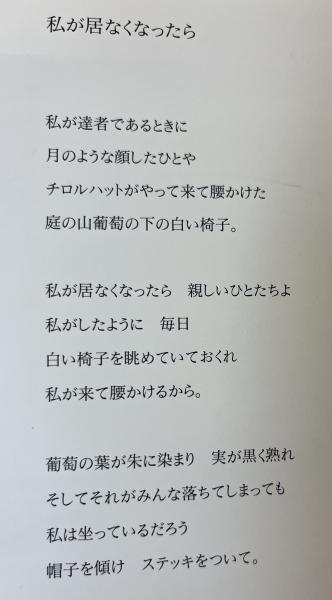 私が居なくなったら
私が達者であるときに
月のような顔したひとや
チロルハットがやって来て腰かけた
庭の山葡萄の下の白い椅子。
私が居なくなったら　親しいひとたちよ
私がしたように　毎日
白い椅子を眺めていておくれ
私が来て腰かけるから。
葡萄の葉が朱に染まり　実が黒く熟れ
そしてそれがみんな落ちてしまっても
私は坐っているだろう
帽子を傾け　ステッキをついて。